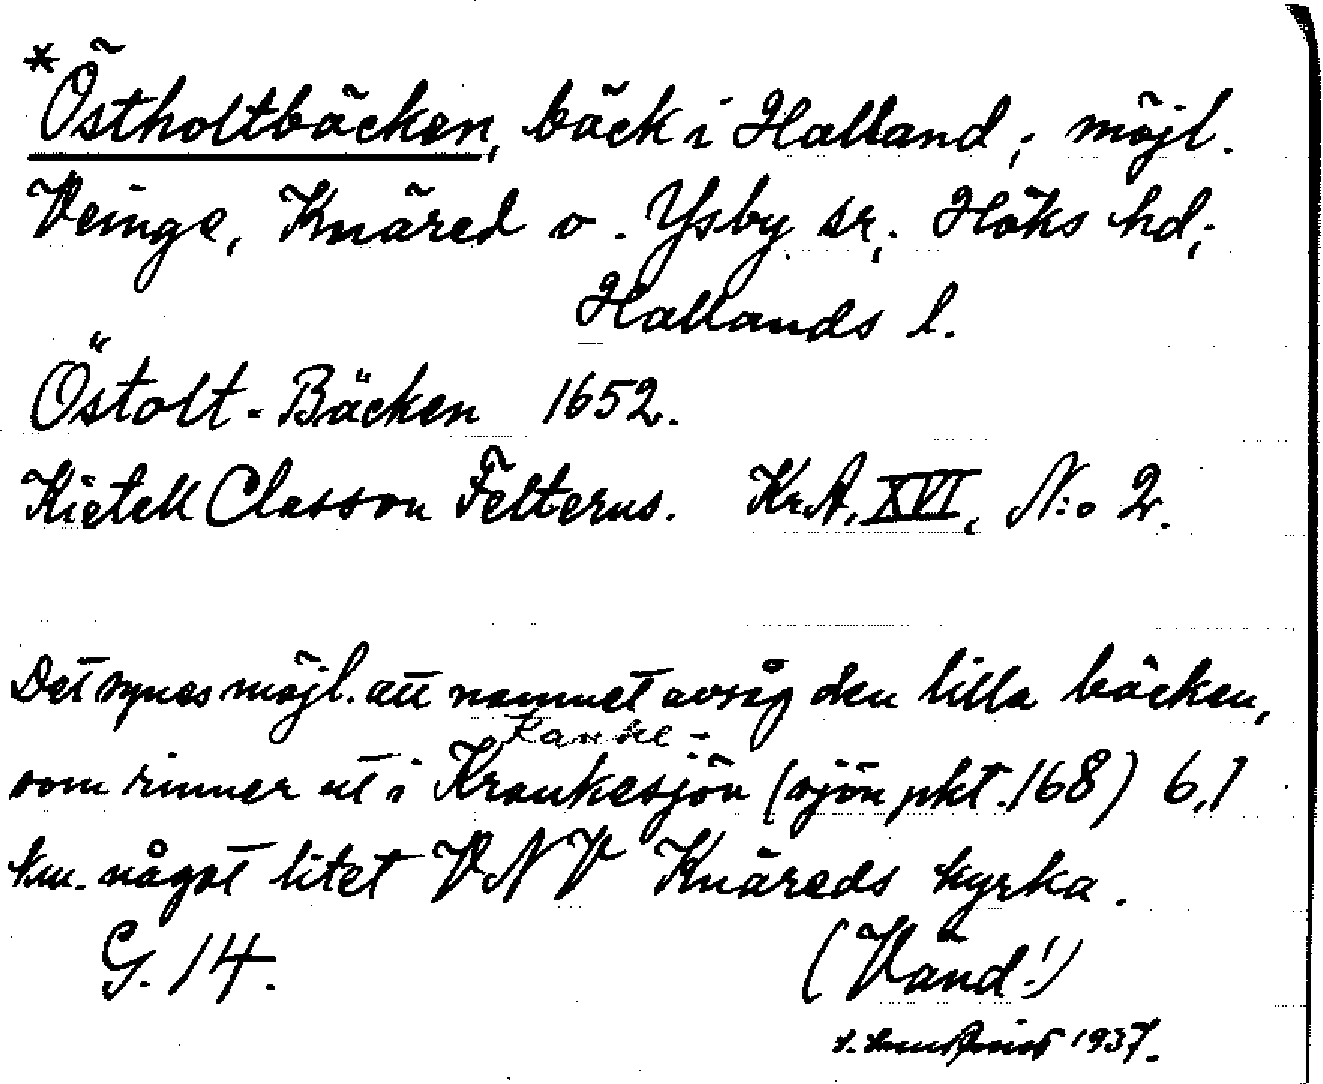 *Östholtbäcken, bäck i Halland; möjl.
Veinge, Knäred o. Ysby sr; Höks hd;
Hallands l.
Östolt-Bäcken 1652.
Kietell Classon Felterus. Kr.A. XVI, N:o 2.
Det synes möjl. att namnet avsåg den lilla bäcken,
Kanke-
som rinner ut i Krankesjön (sjön pkt. 168) 6,1
km. något litet VNV Knäreds kyrka.
G. 14. (Vänd!)
1937.